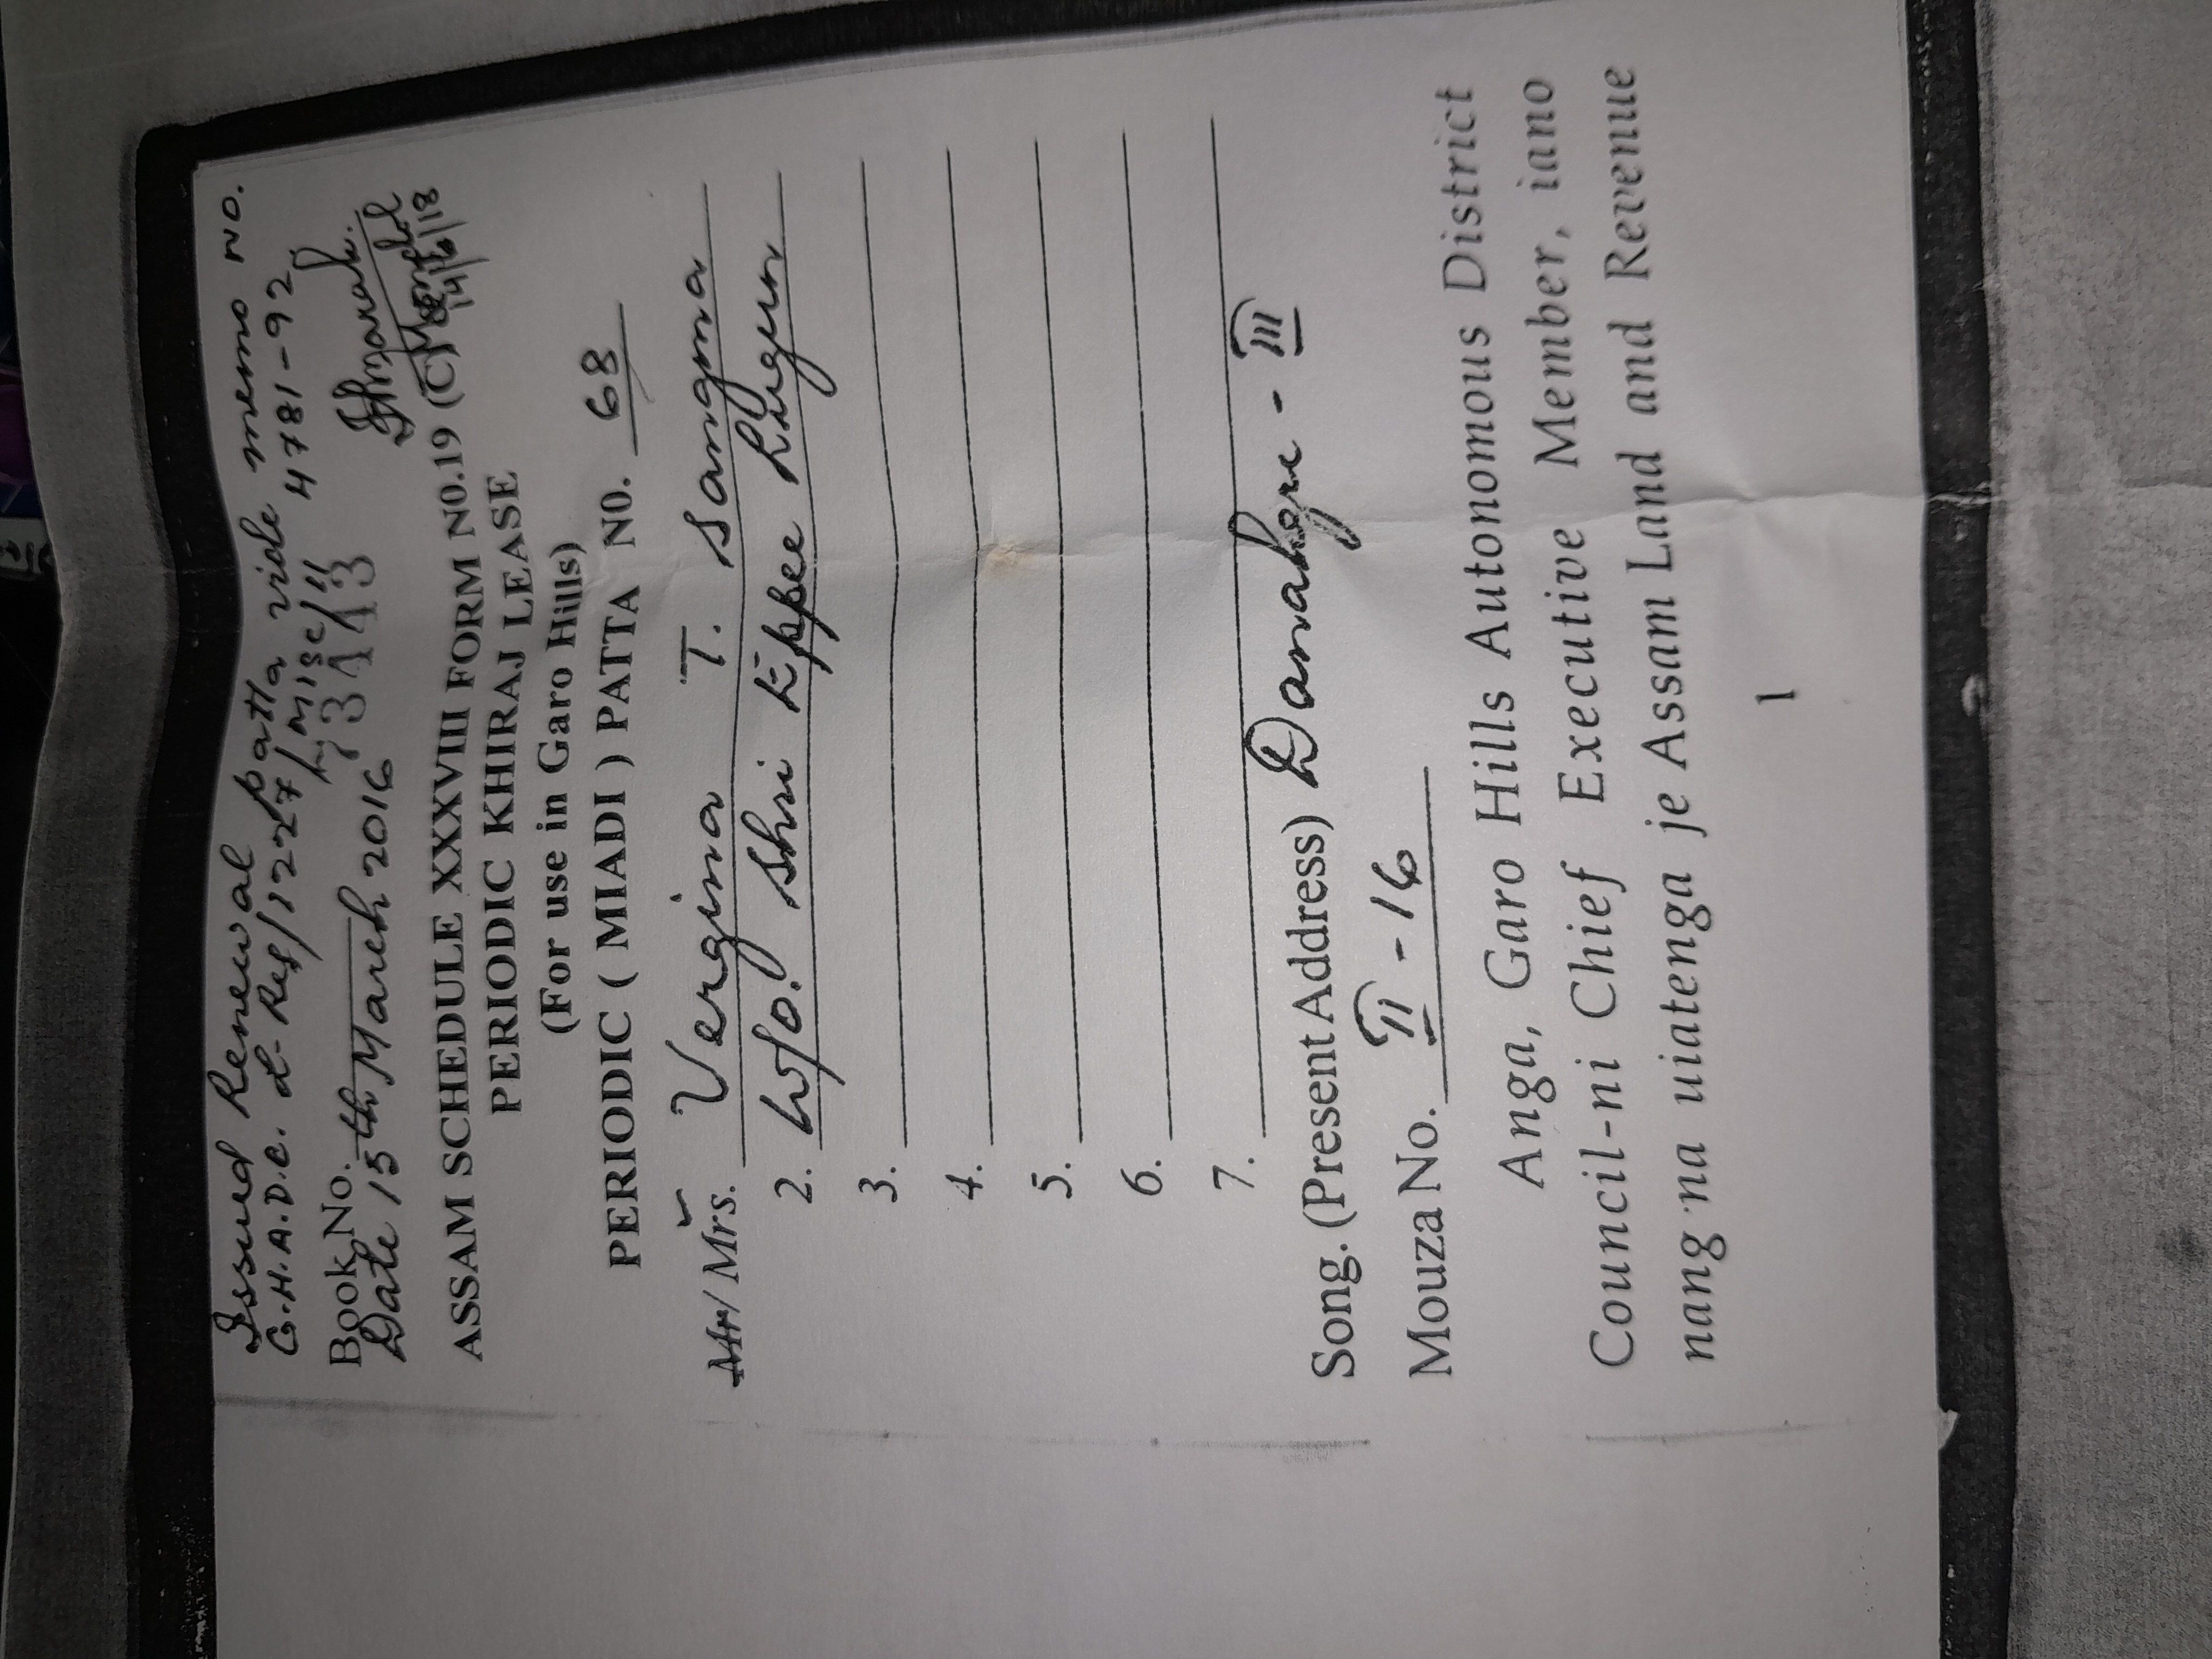 Issued Renewal patta vide memo No.
G.H.A.D.C. Reg/1227/Misc/11 4781-92
Book No. 73443
Date 15th March 2016
14/6/18
ASSAM SCHEDULE XXXVIII FORM N0.19
PERIODIC KHIRAJ LEASE
(For use in Garo Hills)
PERIODIC ( MIADI ) PATTA N0. 68
Mr/ Mrs. Vergina T. Sangma
2. W/o. Shri Eppee Lugun
3.
4.
5.
6.
7.
Song. (Present Address) Danakgre - III
Mouza No. II - 16
Anga, Garo Hills Autonomous District
Council-ni Chief Executive Member, iano
nang·na uiatenga je Assam Land and Revenue
1